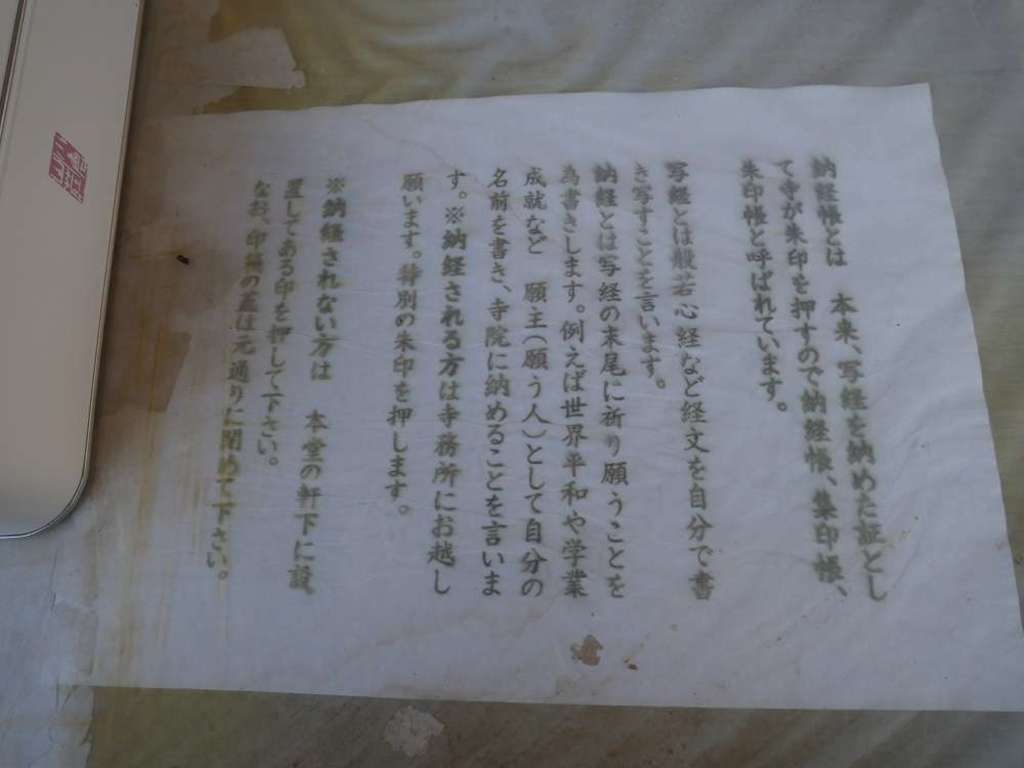 納経帳とは　本来、写経を納めた証とし
て寺が朱印を押すので納経帳、集印帳、
朱印帳と呼ばれています。
写経とは般若心経など経文を自分で書
き写すことを言います。
納経とは写経の末尾に祈り願うことを
為書きします。例えば世界平和や学業
成就など　願主（願う人）として自分の
名前を書き、寺院に納めることを言いま
す。※納経される方は寺務所にお越し
願います。特別の朱印を押します。
※納経されない方は　本堂の軒下に設
置してある印を押して下さい。
なお、印箱の蓋は元通りに閉めて下さい。